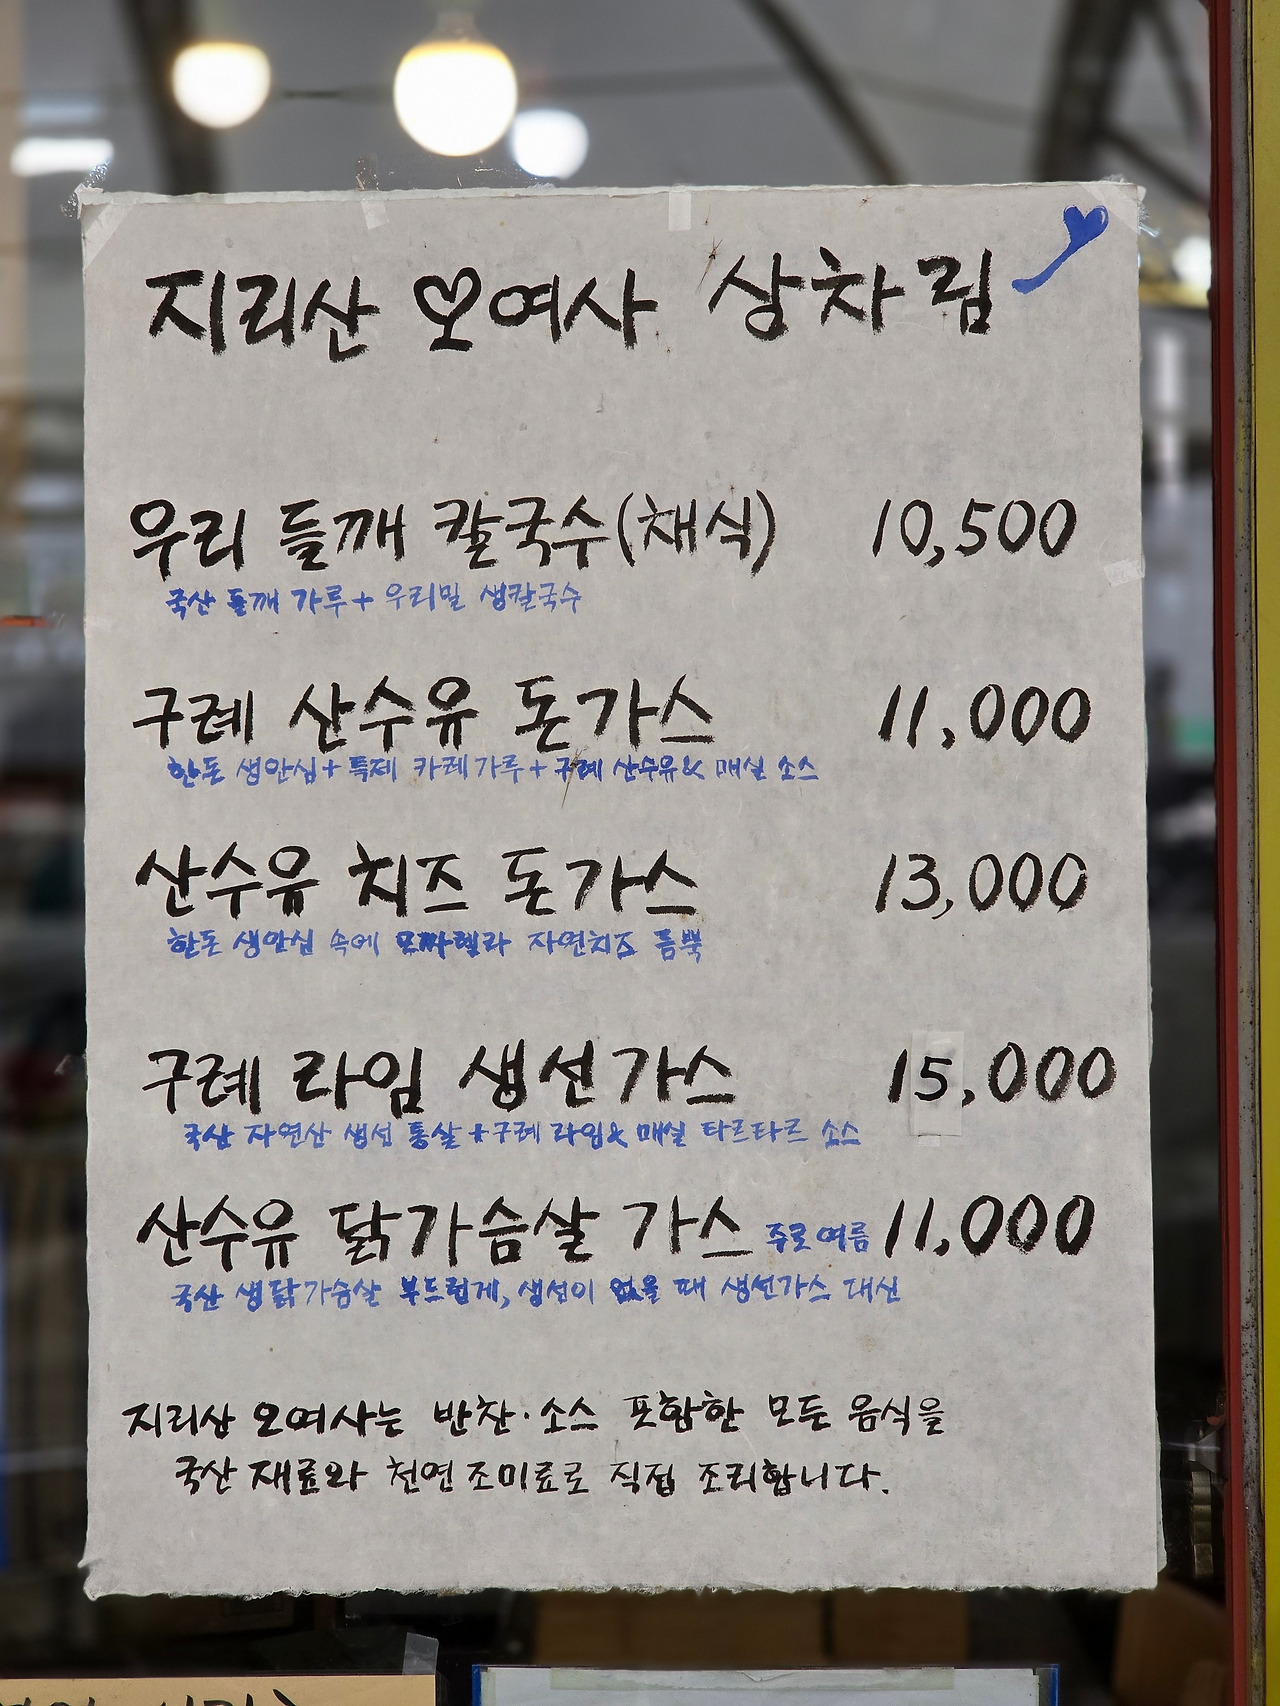 지리산 오여사 상차림
우리 들깨 칼국수(채식) 10,500
국산 들깨 가루+ 우리밀 생칼국수
구례 산수유 돈가스 11,000
한돈 생안심+ 특제 카레가루+ 구례 산수유& 매실 소스
산수유 치즈 돈가스 13,000
한돈 생안심 속에 모짜렐라 자연치즈 듬뿍
구례 라임 생선가스 15,000
국산 자연산 생선 통살 +구례 라임& 매실 타르타르 소스
산수유 닭가슴살 가스 주로 여름 11,000
국산 생닭가슴살 부드럽게, 생선이 없을 때 생선가스 대신
지리산 오여사는 반찬·소스 포함한 모든 음식을
국산 재료와 천연조미료로 직접 조리합니다.